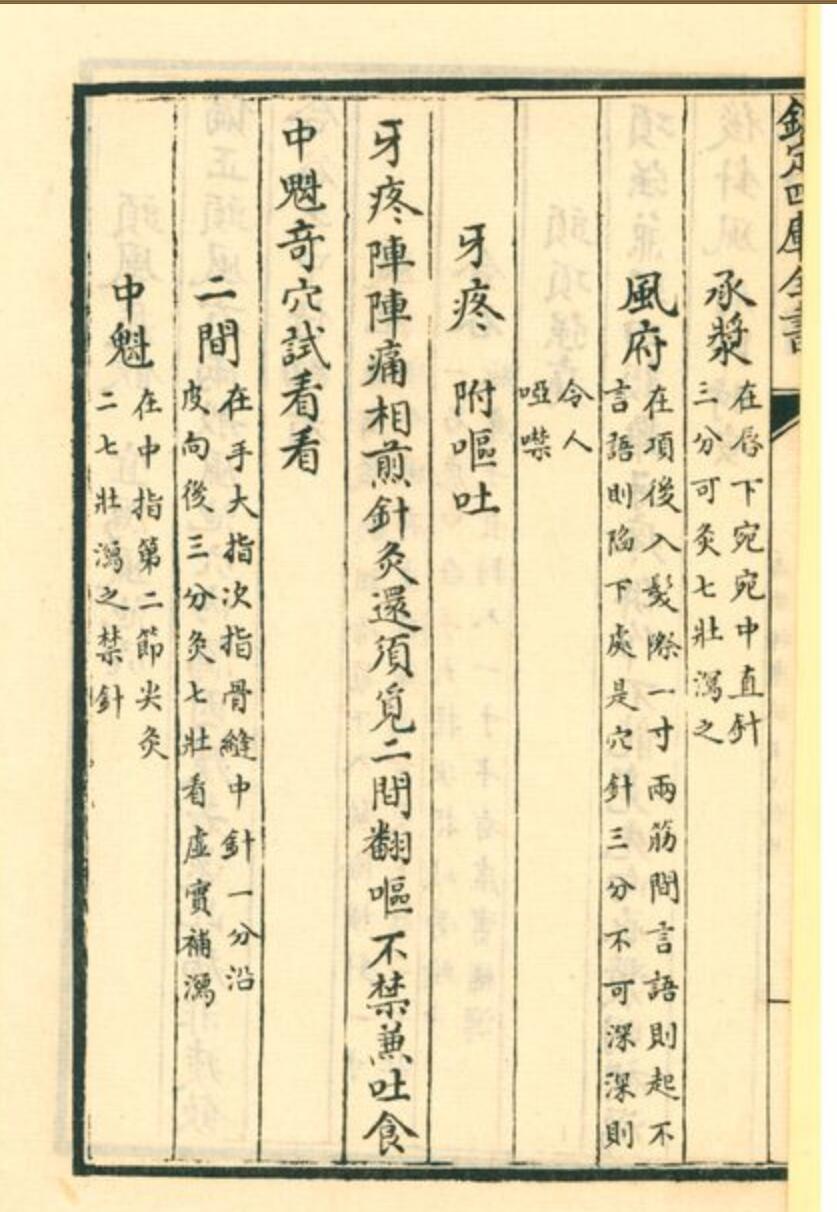 欽定四庫全書
承漿
在唇下宛宛中直針
三分可灸七壯瀉之
風府
在項後入髮際一寸兩筋間言語則起不
言語則陷下處是穴針三分不可深深則
令人
啞噤
牙疼 附嘔吐
牙疼陣陣痛相煎針灸還須覓二間翻嘔不禁兼吐食
中魁奇穴試看看
二間
在手大指次指骨縫中針一分沿
皮向後三分灸七壯看虛實補瀉
中魁
在中指第二節尖灸
二七壯瀉之禁針